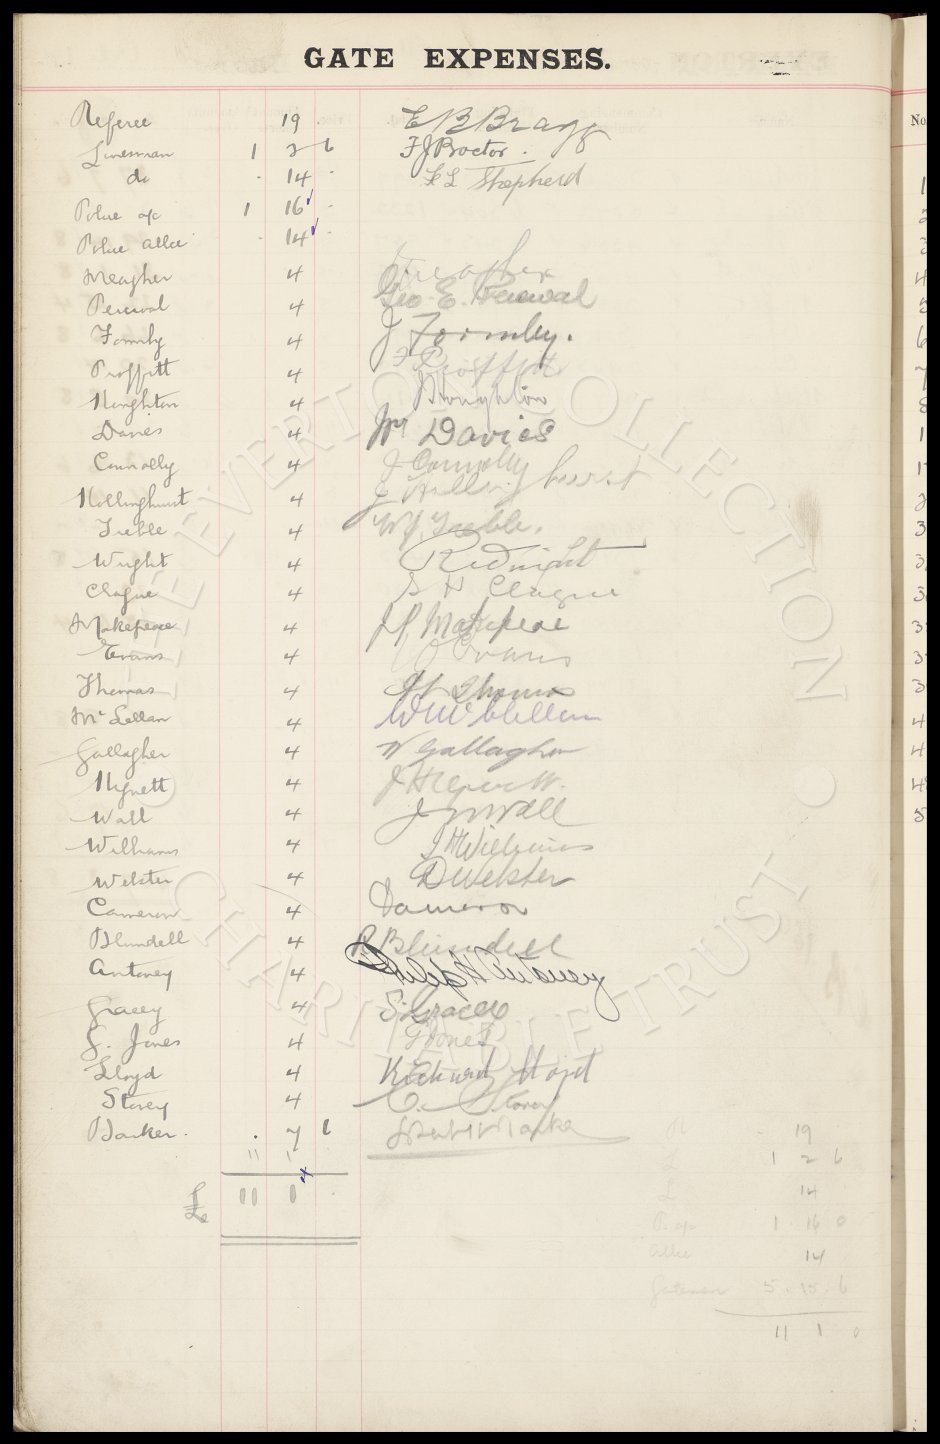 GATE EXPENSES.
Referee 19 . E B Bragg
Linesman 1 2 6 F J Proctor .
do . 14 . F L Shepherd
Police a/c 1 16 .
Police allce . 14 .
Meagher 4 Meagher
Percival 4 Geo. E. Percival
Formby 4 J Formby.
Proffitt 4 F Proffitt
Houghton 4 Houghton
Davies 4 Wm Davies
Connolly 4 J Connolly
Hollinghurst 4 J Hollinghurst
Treble 4 W J. Treble.
Wright 4 R Wright
Clague 4 G H Clague
Makepeace 4 Makepeace
Evans 4 Evans
Thomas 4 Thomas
McLellan 4 W McLellan
Gallagher 4 W Gallagher
Hignett 4 J Hignett.
Wall 4 J Wall
Williams 4 J H Williams
Webster 4 D Webster
Cameron 4 D Cameron
Blundell 4 R Blundell
Antoney 4 Philip H Antoney
Gracey 4 S. Gracey
G. Jones 4 G Jones
Lloyd 4 Richard Lloyd
Storey 4 C. Storey
Barker. . 7 6 Barker
11 1
£ 11 1 4
19
1 2 6
14
P. a/c 1 . 16 0
Allce 14
Gatemen 5 . 15 . 6
11 1 0
THE EVERTON COLLECTION CHARITABLE TRUST
No